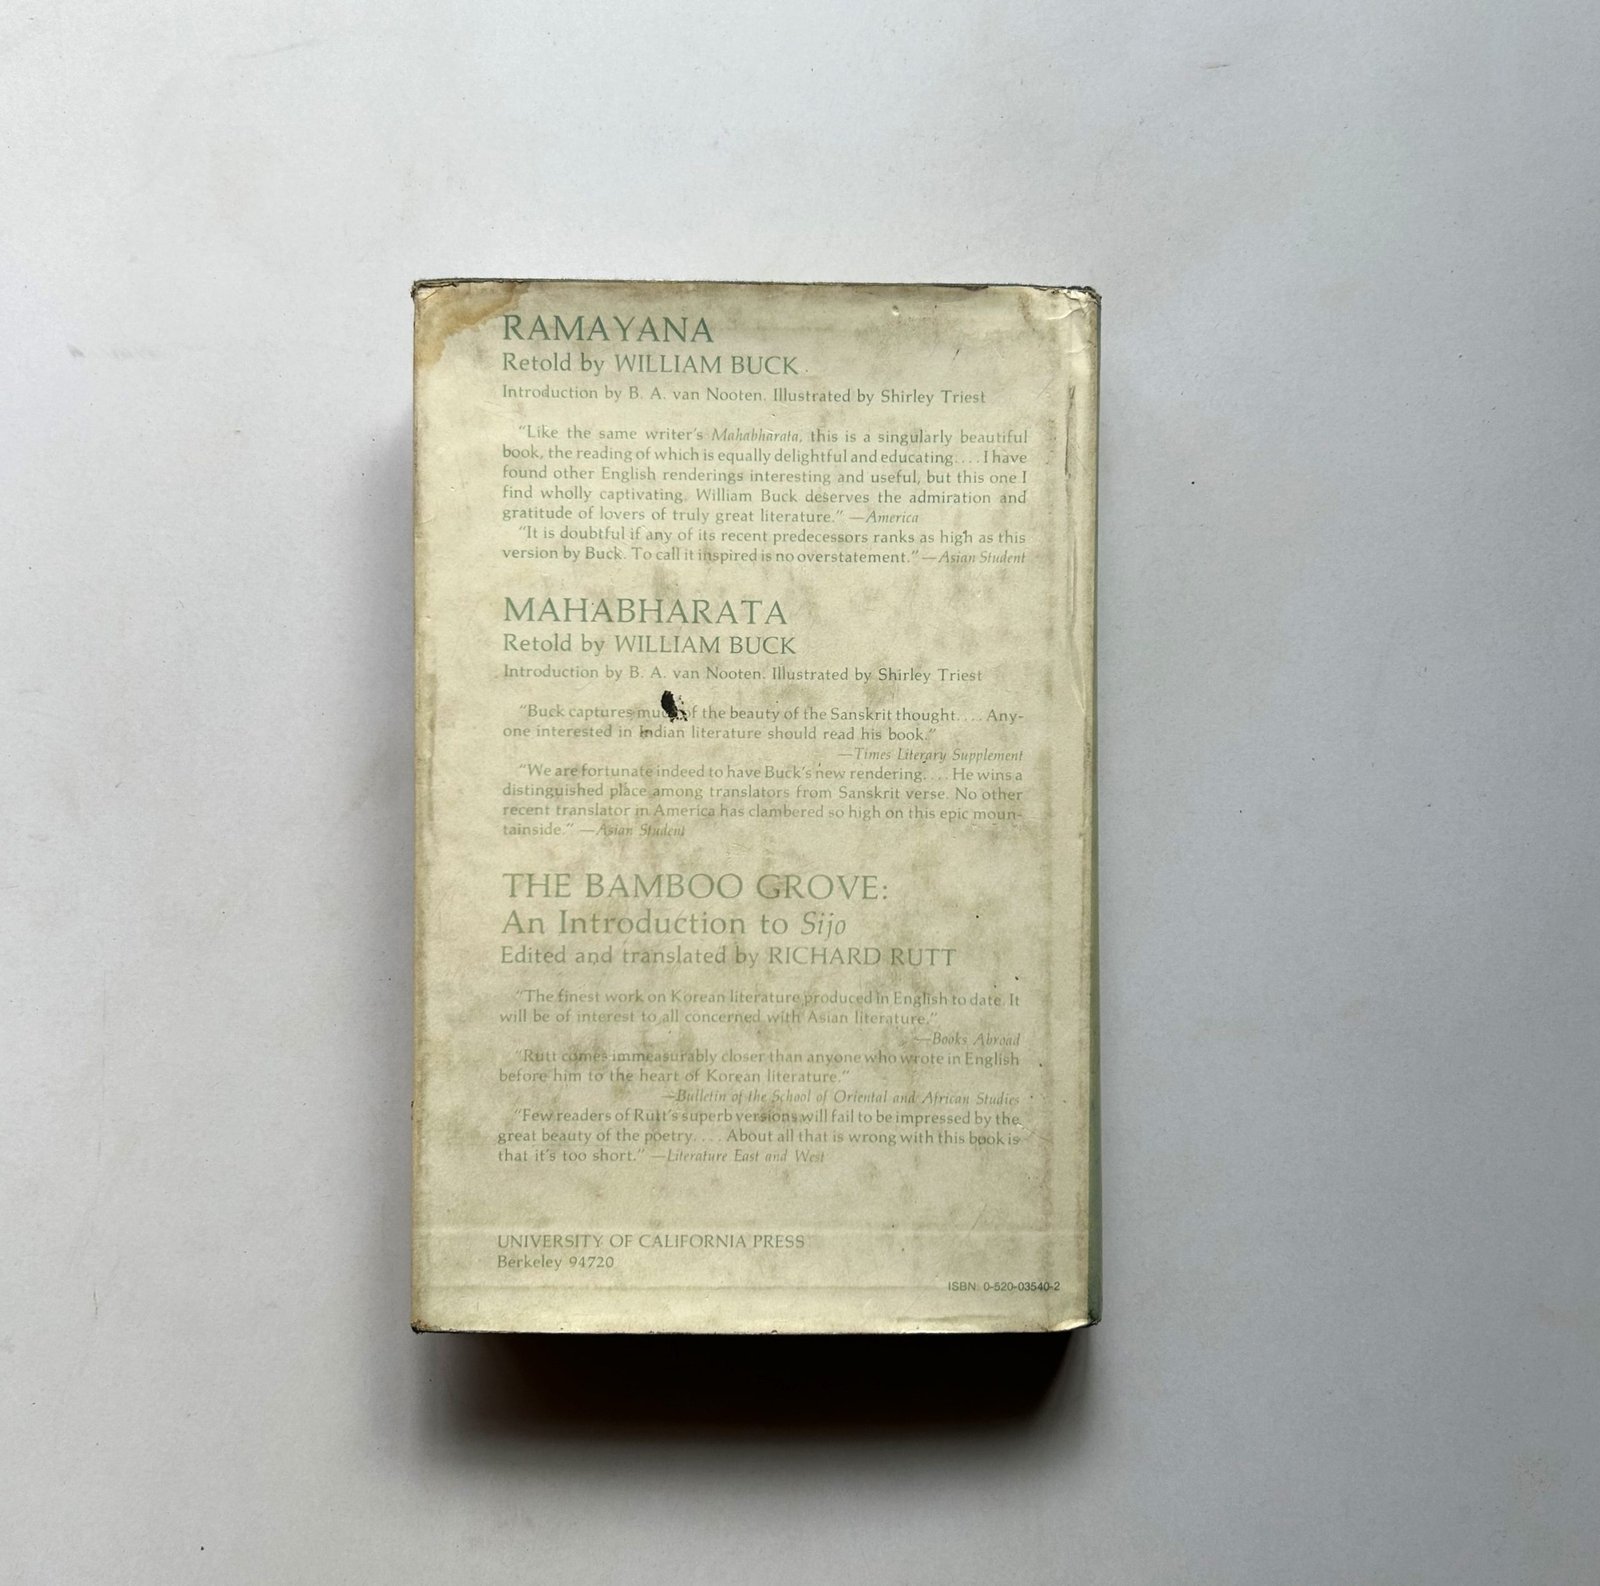 RAMAYANA
Retold by WILLIAM BUCK
Introduction by B. A. van Nooten. Illustrated by Shirley Triest
"Like the same writer's Mahabharata, this is a singularly beautiful
book, the reading of which is equally delightful and educating. . . . I have
found other English renderings interesting and useful, but this one I
find wholly captivating. William Buck deserves the admiration and
gratitude of lovers of truly great literature." —America
"It is doubtful if any of its recent predecessors ranks as high as this
version by Buck. To call it inspired is no overstatement." —Asian Student
MAHABHARATA
Retold by WILLIAM BUCK
Introduction by B. A. van Nooten. Illustrated by Shirley Triest
"Buck captures much of the beauty of the Sanskrit thought. . . . Any-
one interested in Indian literature should read his book."
—Times Literary Supplement
"We are fortunate indeed to have Buck's new rendering. . . . He wins a
distinguished place among translators from Sanskrit verse. No other
recent translator in America has clambered so high on this epic moun-
tainside." —Asian Student
THE BAMBOO GROVE:
An Introduction to Sijo
Edited and translated by RICHARD RUTT
"The finest work on Korean literature produced in English to date. It
will be of interest to all concerned with Asian literature."
—Books Abroad
"Rutt comes immeasurably closer than anyone who wrote in English
before him to the heart of Korean literature."
—Bulletin of the School of Oriental and African Studies
"Few readers of Rutt's superb versions will fail to be impressed by the
great beauty of the poetry. . . . About all that is wrong with this book is
that it's too short." —Literature East and West
UNIVERSITY OF CALIFORNIA PRESS
Berkeley 94720
ISBN: 0-520-03540-2